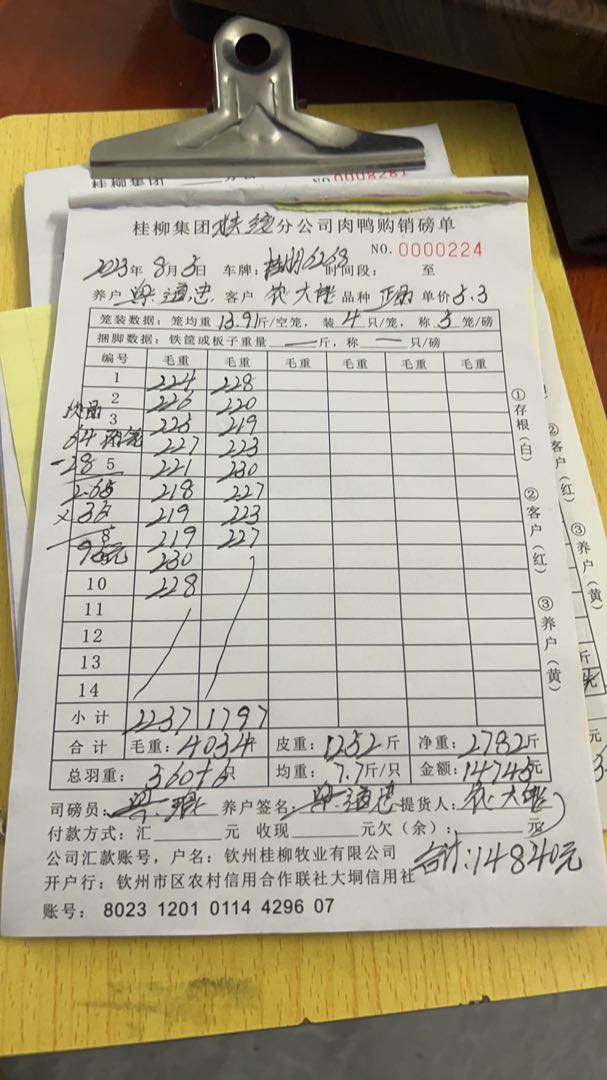 桂柳集团
NO.0008281
桂柳集团 分公司肉鸭购销磅单
NO.0000224
2023年8月5日 车牌: 时间段: 至
养户 梁道忠 客户 农大 品种 正品 单价5.3
笼装数据：笼均重13.91斤/空笼，装4只/笼，称5笼/磅
捆脚数据：铁筐或板子重量—斤，称—只/磅
编号 毛重 毛重 毛重 毛重 毛重 毛重
1 224 228
2 226 220
3 225 219
227 223
5 221 230
218 227
219 223
8 219 227
230
10 228
11
12
13
14
次品
64
-28
×35
小计 2237 1797
合计 毛重：4034斤 皮重：1252斤 净重：2782斤
总羽重：360+6只 均重：7.7斤/只 金额：14745元
司磅员：梁 养户签名：梁道忠 提货人：农大
付款方式：汇 元 收现 元欠（余）： 元
合计:14840元
公司汇款账号，户名：钦州桂柳牧业有限公司
开户行：钦州市区农村信用合作联社大垌信用社
账号：8023 1201 0114 4296 07
①存根（白）
②客户（红）
③养户（黄）
②客户（红）
③养户（黄）
斤
元